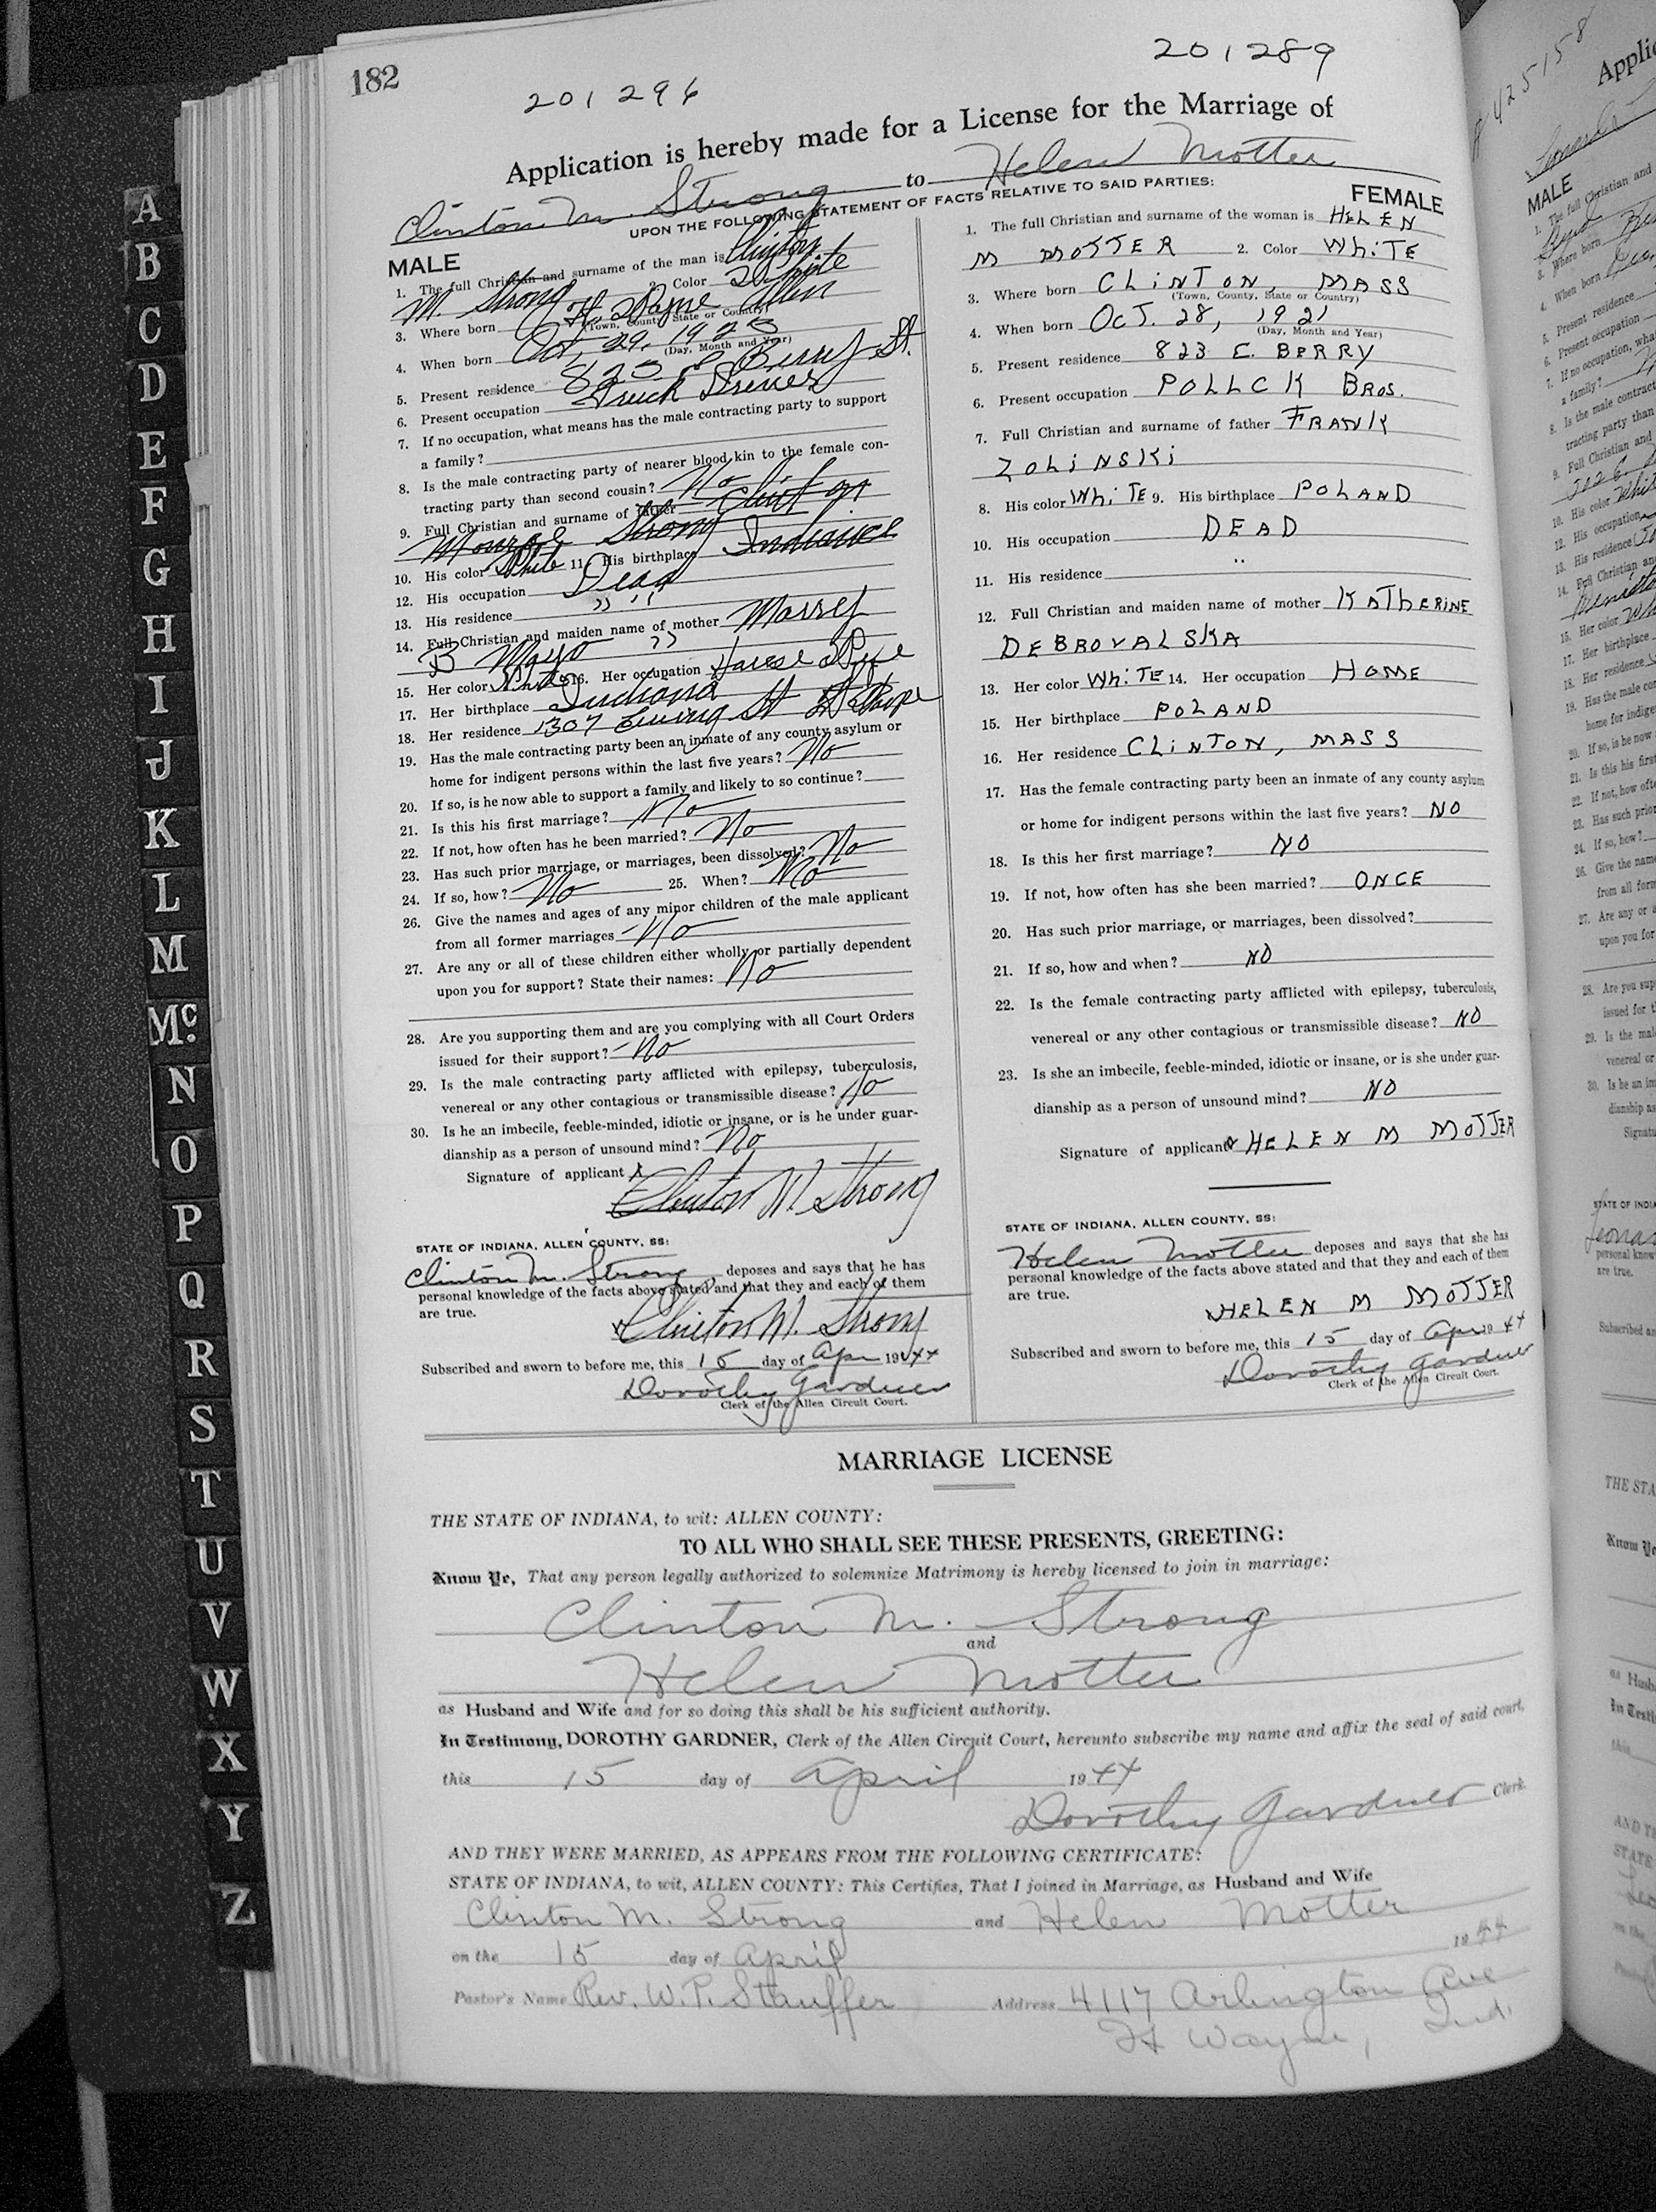 182
201296
201289
Application is hereby made for a License for the Marriage of
Clinton M. Strong to Helen Motter
UPON THE FOLLOWING STATEMENT OF FACTS RELATIVE TO SAID PARTIES:
MALE
1. The full Christian and surname of the man is Clinton
M. Strong 2. Color White
3. Where born Ft. Wayne Allen
(Town, County, State or Country)
4. When born Oct, 29, 1923
(Day, Month and Year)
5. Present residence 823 E Berry St.
6. Present occupation Truck Driver
7. If no occupation, what means has the male contracting party to support
a family?
8. Is the male contracting party of nearer blood kin to the female con-
tracting party than second cousin? No
9. Full Christian and surname of father Clinton
Monroe Strong
10. His color White 11. His birthplace Indiana
12. His occupation Dead
13. His residence " "
14. Full Christian and maiden name of mother
B Mayo
15. Her color White 16. Her occupation House Wife
17. Her birthplace Indiana
18. Her residence 1307 Ewing St Ft Wayne
19. Has the male contracting party been an inmate of any county asylum or
home for indigent persons within the last five years? No
20. If so, is he now able to support a family and likely to so continue?
21. Is this his first marriage? No
22. If not, how often has he been married? No
23. Has such prior marriage, or marriages, been dissolved? No
24. If so, how? No 25. When? No
26. Give the names and ages of any minor children of the male applicant
from all former marriages No
27. Are any or all of these children either wholly or partially dependent
upon you for support? State their names: No
28. Are you supporting them and are you complying with all Court Orders
issued for their support? No
29. Is the male contracting party afflicted with epilepsy, tuberculosis,
venereal or any other contagious or transmissible disease? No
30. Is he an imbecile, feeble-minded, idiotic or insane, or is he under guar-
dianship as a person of unsound mind? No
Signature of applicant X
Clinton M. Strong
STATE OF INDIANA, ALLEN COUNTY, SS:
Clinton M. Strong deposes and says that he has
personal knowledge of the facts above stated and that they and each of them
are true.
Clinton M. Strong
Subscribed and sworn to before me, this 15 day of Apr 1944
Dorothy Gardner
Clerk of the Allen Circuit Court.
FEMALE
1. The full Christian and surname of the woman is HELEN
M MOTTER 2. Color WHiTE
3. Where born CLiNTON, MASS
(Town, County, State or Country)
4. When born OCT. 28, 1921
(Day, Month and Year)
5. Present residence 823 E. BERRY
6. Present occupation POLLCK BROS.
7. Full Christian and surname of father FRANK
ZOLiNSKi
8. His color WHiTE 9. His birthplace POLAND
10. His occupation DEAD
11. His residence "
12. Full Christian and maiden name of mother KATHERINE
DEBROVALSKA
13. Her color WHiTE 14. Her occupation HOME
15. Her birthplace POLAND
16. Her residence CLiNTON, MASS
17. Has the female contracting party been an inmate of any county asylum
or home for indigent persons within the last five years? NO
18. Is this her first marriage? NO
19. If not, how often has she been married? ONCE
20. Has such prior marriage, or marriages, been dissolved?
21. If so, how and when? NO
22. Is the female contracting party afflicted with epilepsy, tuberculosis,
venereal or any other contagious or transmissible disease? NO
23. Is she an imbecile, feeble-minded, idiotic or insane, or is she under guar-
dianship as a person of unsound mind? NO
Signature of applicant HELEN M MOTTER
STATE OF INDIANA, ALLEN COUNTY, SS:
Helen Motter deposes and says that she has
personal knowledge of the facts above stated and that they and each of them
are true.
HELEN M MOTTER
Subscribed and sworn to before me, this 15 day of Apr 1944
Dorothy Gardner
Clerk of the Allen Circuit Court.
MARRIAGE LICENSE
THE STATE OF INDIANA, to wit: ALLEN COUNTY:
TO ALL WHO SHALL SEE THESE PRESENTS, GREETING:
Know Ye, That any person legally authorized to solemnize Matrimony is hereby licensed to join in marriage:
Clinton M. Strong
and
Helen Motter
as Husband and Wife and for so doing this shall be his sufficient authority.
In Testimony, DOROTHY GARDNER, Clerk of the Allen Circuit Court, hereunto subscribe my name and affix the seal of said court,
this 15 day of April 1944
Dorothy Gardner Clerk.
AND THEY WERE MARRIED, AS APPEARS FROM THE FOLLOWING CERTIFICATE:
STATE OF INDIANA, to wit, ALLEN COUNTY: This Certifies, That I joined in Marriage, as Husband and Wife
Clinton M. Strong and Helen Motter
on the 15 day of April 1944
Pastor's Name Rev. W. P. Stauffer Address 4117 Arlington Ave
Ft Wayne, Ind.
A
B
C
D
E
F
G
H
I
J
K
L
M
Mc
N
O
P
Q
R
S
T
U
V
W
X
Y
Z